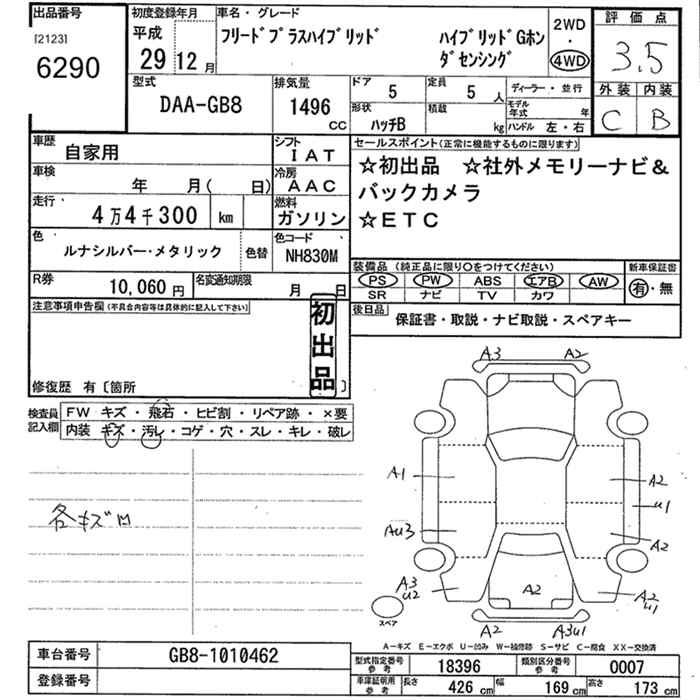 出品番号
[2123]
6290
初度登録年月
平成
29年12月
車名・グレード
フリードプラスハイブリッド ハイブリッドGホン
ダセンシング
2WD
・
4WD
評価点
3.5
外装 内装
C B
型式
DAA-GB8
排気量
1496
CC
ドア 5
定員 5人
形状 ハッチB
積載 kg
ディーラー・並行
モデル年式 年
ハンドル 左・右
車歴 自家用
シフト IAT
車検 年 月( 日)
冷房 AAC
走行 4万4千300 km
燃料 ガソリン
色 ルナシルバー・メタリック 色替
色コード NH830M
R券 10,060円
名変通知期限 月 日
セールスポイント(正常に機能するものに限ります)
☆初出品 ☆社外メモリーナビ&
バックカメラ
☆ETC
装備品(純正品に限り○をつけてください)
新車保証書
PS PW ABS エアB AW
SR ナビ TV カワ
有・無
後日品 保証書・取説・ナビ取説・スペアキー
注意事項申告欄(不具合内容等は具体的に記入して下さい)
初出品
修復歴 有〔箇所 〕
検査員記入欄
FW キズ・飛石・ヒビ割・リペア跡・×要
内装 キズ・汚レ・コゲ・穴・スレ・キレ・破レ
各キズ凹
A3 A2
A1 A2
u1
Au3 A2
A3
u2
A2
A2
u1
スペア
A2 A3u1
A-キズ E-エクボ U-凹み W-補修跡 S-サビ C-腐食 XX-交換済
車台番号 GB8-1010462
登録番号
型式指定番号 参考 18396
類別区分番号 参考 0007
車庫証明用 参考 長さ 426cm 幅 169cm 高さ 173cm